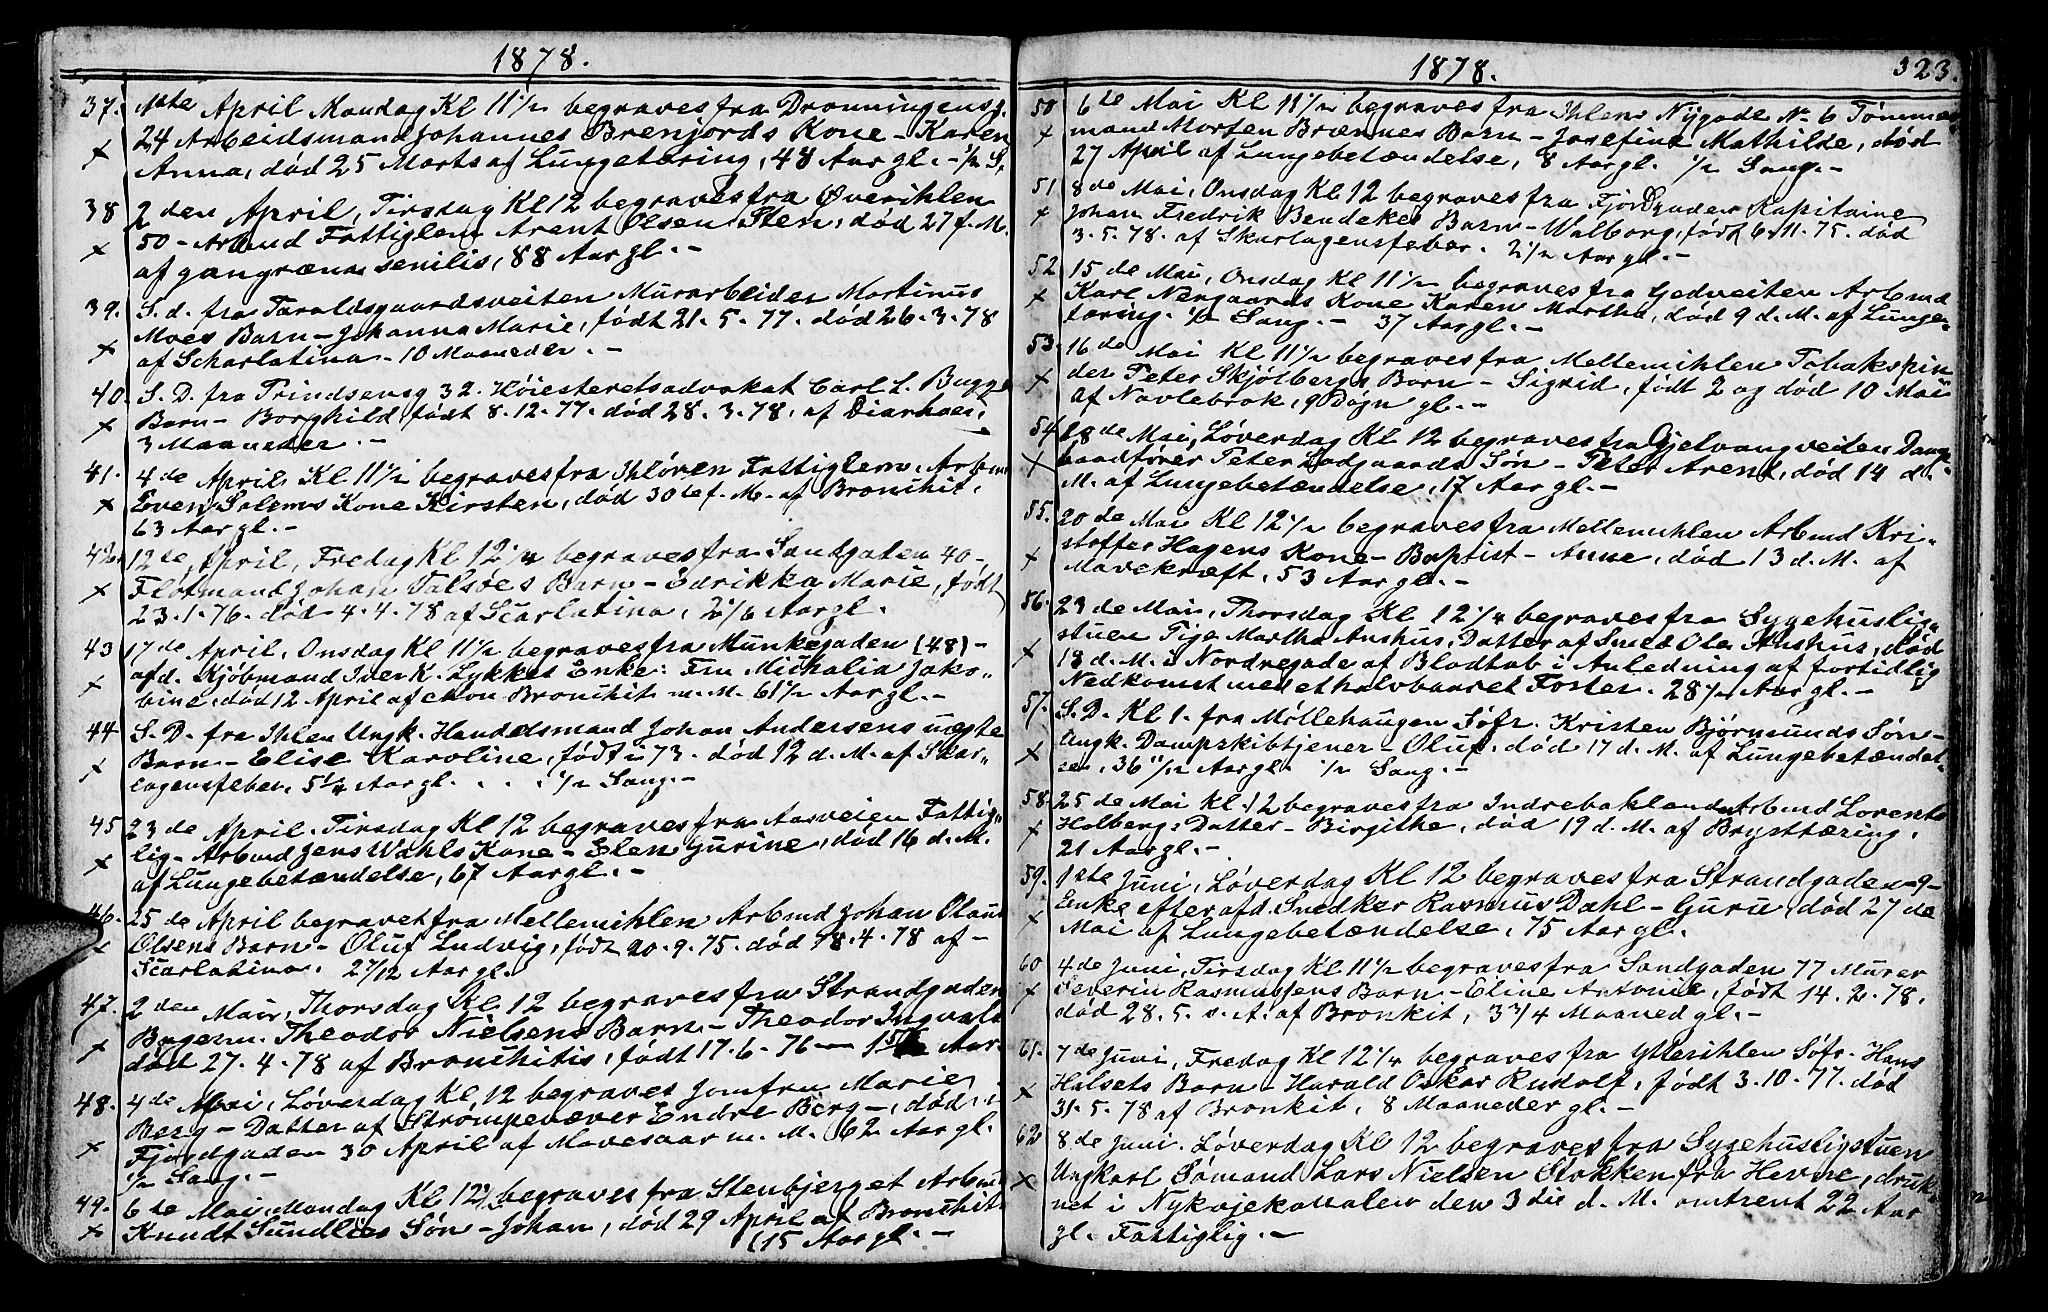 1878.
37. 1ste April Mandag Kl 11 1/2 begraves fra Dronningensg.
24 Arbeidsmand Johannes Brenjords Kone - Karen
x Anna, død 25 Marts af Lungetæring, 48 Aar gl. - 1/2 S.
38 2den April, Tirsdag Kl 12 begraves fra Øverihlen
x 50 - Arbmd Fattiglem Arent Olsen Sten, død 27 f. M.
af gangræna senilis, 88 Aar gl. -
39. S. d. fra Taraldsgaardsveiten Murarbeider Martinus
Moes Barn - Johanna Marie, født 21. 5. 77. død 26. 3. 78
x af Scharlatina - 10 Maaneder. -
40. S. D. fra Trindsensg 32. Høiesteretsadvokat Carl L. Bugges
x Barn - Borghild, født 8. 12. 77. død 28. 3. 78. af Diarhoer,
3 Maaneder. -
41. 4de April Kl 11 1/2 begraves fra Ihløren Fattiglem. Arbmd
x Even Solems Kone Kirsten, død 30te f. M. af Bronchit,
63 Aar gl. -
42. 12te April, Fredag Kl 12 1/4 begraves fra Sandgaden 40 -
x Flotmand Johan Valsøes Barn - Edrikka Marie, født
23. 1. 76. død 4. 4. 78 af Scarlatina, 2 1/6 Aar gl.
43 17de April, Onsdag Kl 11 1/2 begraves fra Munkegaden (48) -
x afd. Kjøbmand Iver K. Lykkes Enke: Fru Michalia Jako-
bine, død 12 April af chron Bronchit m. M. 61 1/2 Aar gl. -
44 S. D. fra Ihlen Ungk. Handelsmand Johan Andersens uegte
x Barn - Elise Karoline, født i 73. død 12 d. M. af Skar-
lagensfeber, 5 1/4 Aar gl. . . . 1/2 Sang. -
45 23de April. Tirsdag Kl 12 begraves fra Aasveien Fattig-
x lig - Arbmd Jens Wahls Kone - Elen Gurine, død 16 d. M.
af Lungebetændelse, 67 Aar gl. -
46. 25de April begravet fra Mellemihlen Arbmd Johan Olaus
x Olsens Barn - Oluf Ludvig, født 20. 9. 75. død 18. 4. 78 af -
Scarlatina. 2 7/12 Aar gl.
47. 2den Mai, Thorsdag Kl 12 begraves fra Strandgaden
x Bagerm. Theodor Nielsens Barn. - Theodor Ingvald
død 27. 4. 78 af Bronchitis, født 17. 6. 76 - Aar.
48. 4de Mai, Løverdag Kl 12 begraves Jomfru Marie
x Berg - Datter af Strømpevæver Endre Berg -, død i
Fjordgaden 30 April af Mavesaar m. M. 62 Aar gl.
1/2 Sang. -
49. 6te Mai, Mandag Kl 12 1/2 begraves fra Stenbjerget Arbmd
x Knudt Sundlies Søn - Johan, død 29 April af Bronchit.
(15 Aar gl. -
1878. 323.
50 6te Mai Kl 11 1/2 begraves fra Ihlens Nygade No 6 Tømmer-
x mand Morten Brænnes Barn - Josefine Mathilde, død
27 April af Lungebetændelse, 8 Aar gl. 1/2 Sang. -
51 8de Mai, Onsdag Kl 12 begraves fra Fjordgaden Kapitaine
x Johan Fredrik Bendekes Barn - Walborg, født 6. 11. 75. død
3. 5. 78. af Skarlagensfeber. 2 1/2 Aar gl. -
52. 15de Mai, Onsdag Kl 11 1/2 begraves fra Gedveiten Arbmd
x Karl Nergaards Kone Karen Martha, død 9 d. M. af Lunge-
tæring. 1/2 Sang. - 37 Aar gl. -
53. 16de Mai Kl 11 1/2 begraves fra Mellemihlen Tobakspin
x der Peter Skjølbergs Barn - Sigrid, født 2 og død 10 Mai
af Navlebrok, 9 Døgn gl. -
54 18de Mai, Løverdag Kl 12 begraves fra Gjelvangveiden Damp-
x baadfører Peter Lodgaards Søn - Peter Arent, død 14 d.
M. af Lungebetændelse, 17 Aar gl. -
55. 20de Mai Kl 12 1/2 begraves fra Mellemihlen Arbmd Kri-
x stoffer Hagens Kone - Baptist - Anne, død 13 d. M. af
Mavekræft, 53 Aar gl. -
56. 23de Mai, Thorsdag Kl 12 1/4 begraves fra Sygehuslig-
x stuen Pige Martha Aushus, Datter af Smed Ole Aushus, død
18 d. M. i Nordregade af Blodtab i Anledning af fortidlig
Nedkomst med et halvbaaret Foster. 28 1/2 Aar gl. -
57. S. D. Kl 1. fra Møllehaugen Søfr. Kristen Bjørnsunds Søn -
x Ungk. Dampskibtjener - Oluf, død 17 d. M. af Lungebetændel-
se, 36 11/12 Aar gl. 1/2 Sang. -
58. 25de Mai Kl 12 begraves fra Indrebaklandet Arbmd Lorents
x Holbergs Datter - Birgithe, død 19 d. M. af Brysttæring,
21 Aar gl. -
59. 1ste Juni, Løverdag Kl 12 begraves fra Strandgaden - 9 -
x Enke efter afd. Snedker Rasmus Dahl - Guru, død 27de
Mai af Lungebetændelse, 75 Aar gl.
60 4de Juni, Tirsdag Kl 11 1/2 begraves fra Sandgaden 77 Murer
x Severin Rasmussens Barn - Eline Antonie, født 14. 2. 78.
død 28. 5. s. A. af Bronkit, 3 3/4 Maaned gl. -
61. 7de Juni, Fredag Kl 12 1/4 begraves fra Ytterihlen Søfr. Hans
x Halsets Barn - Harald Oskar Rudolf, født 3. 10. 77. død
31. 5. 78 af Bronkit, 8 Maaneder gl. -
62 8de Juni. Løverdag Kl 12 begraves fra Sygehusligstuen
x Ungkarl Sømand Lars Nielsen Stokken fra Hevne, druk-
net i Nykøjekanalen den 3die d. M. omtrent 22 Aar
gl. Fattiglig. -